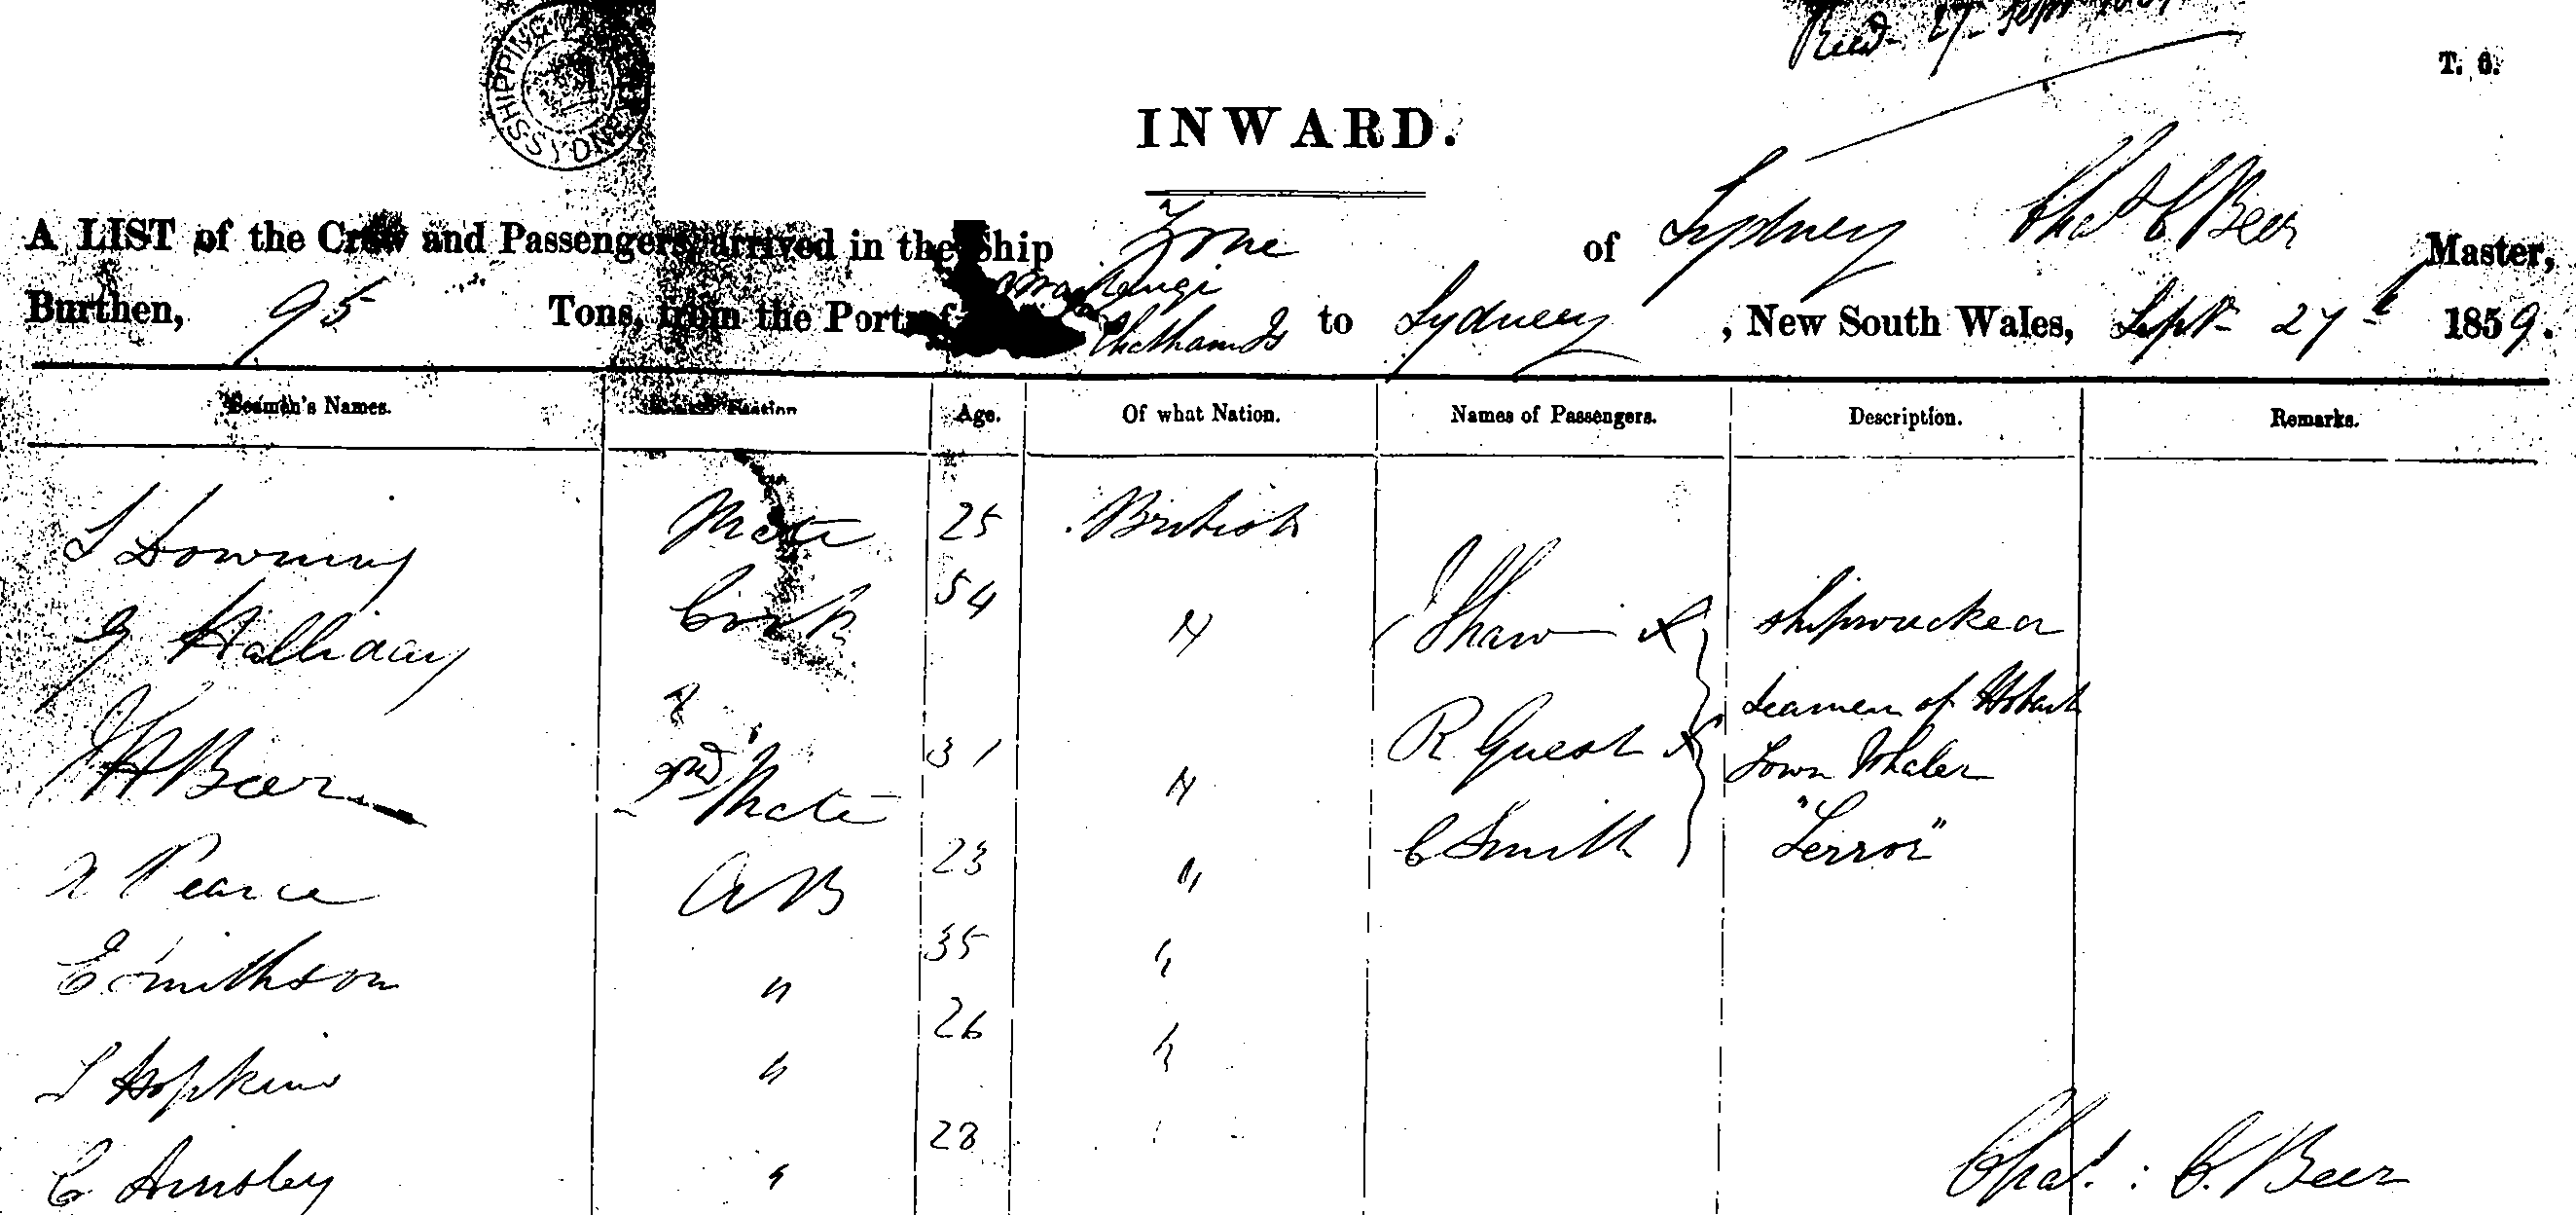 SHIPPING SYDNEY
Recd. 27 Sept 1859
T. 6.
INWARD.
A LIST of the Crew and Passengers, arrived in the Ship Zone of Sydney Chas C Beer Master,
Burthen, 95 Tons, from the Port of Waitangi Chatham Is to Sydney, New South Wales, Sept 27th 1859.
Seamen's Names. Station Age. Of what Nation. Names of Passengers. Description. Remarks.
Downing Mate 25 British
Halliday Cook 54 " Shaw X shipwrecked
Beer 2nd Mate 31 " R Guest X Seamen of Hobart
Town Whaler
Pearce AB 23 " C Smith "Terror"
E Smithson " 35 "
Hopkins " 26 "
C Ainsley " 28
Chas. : C. Beer